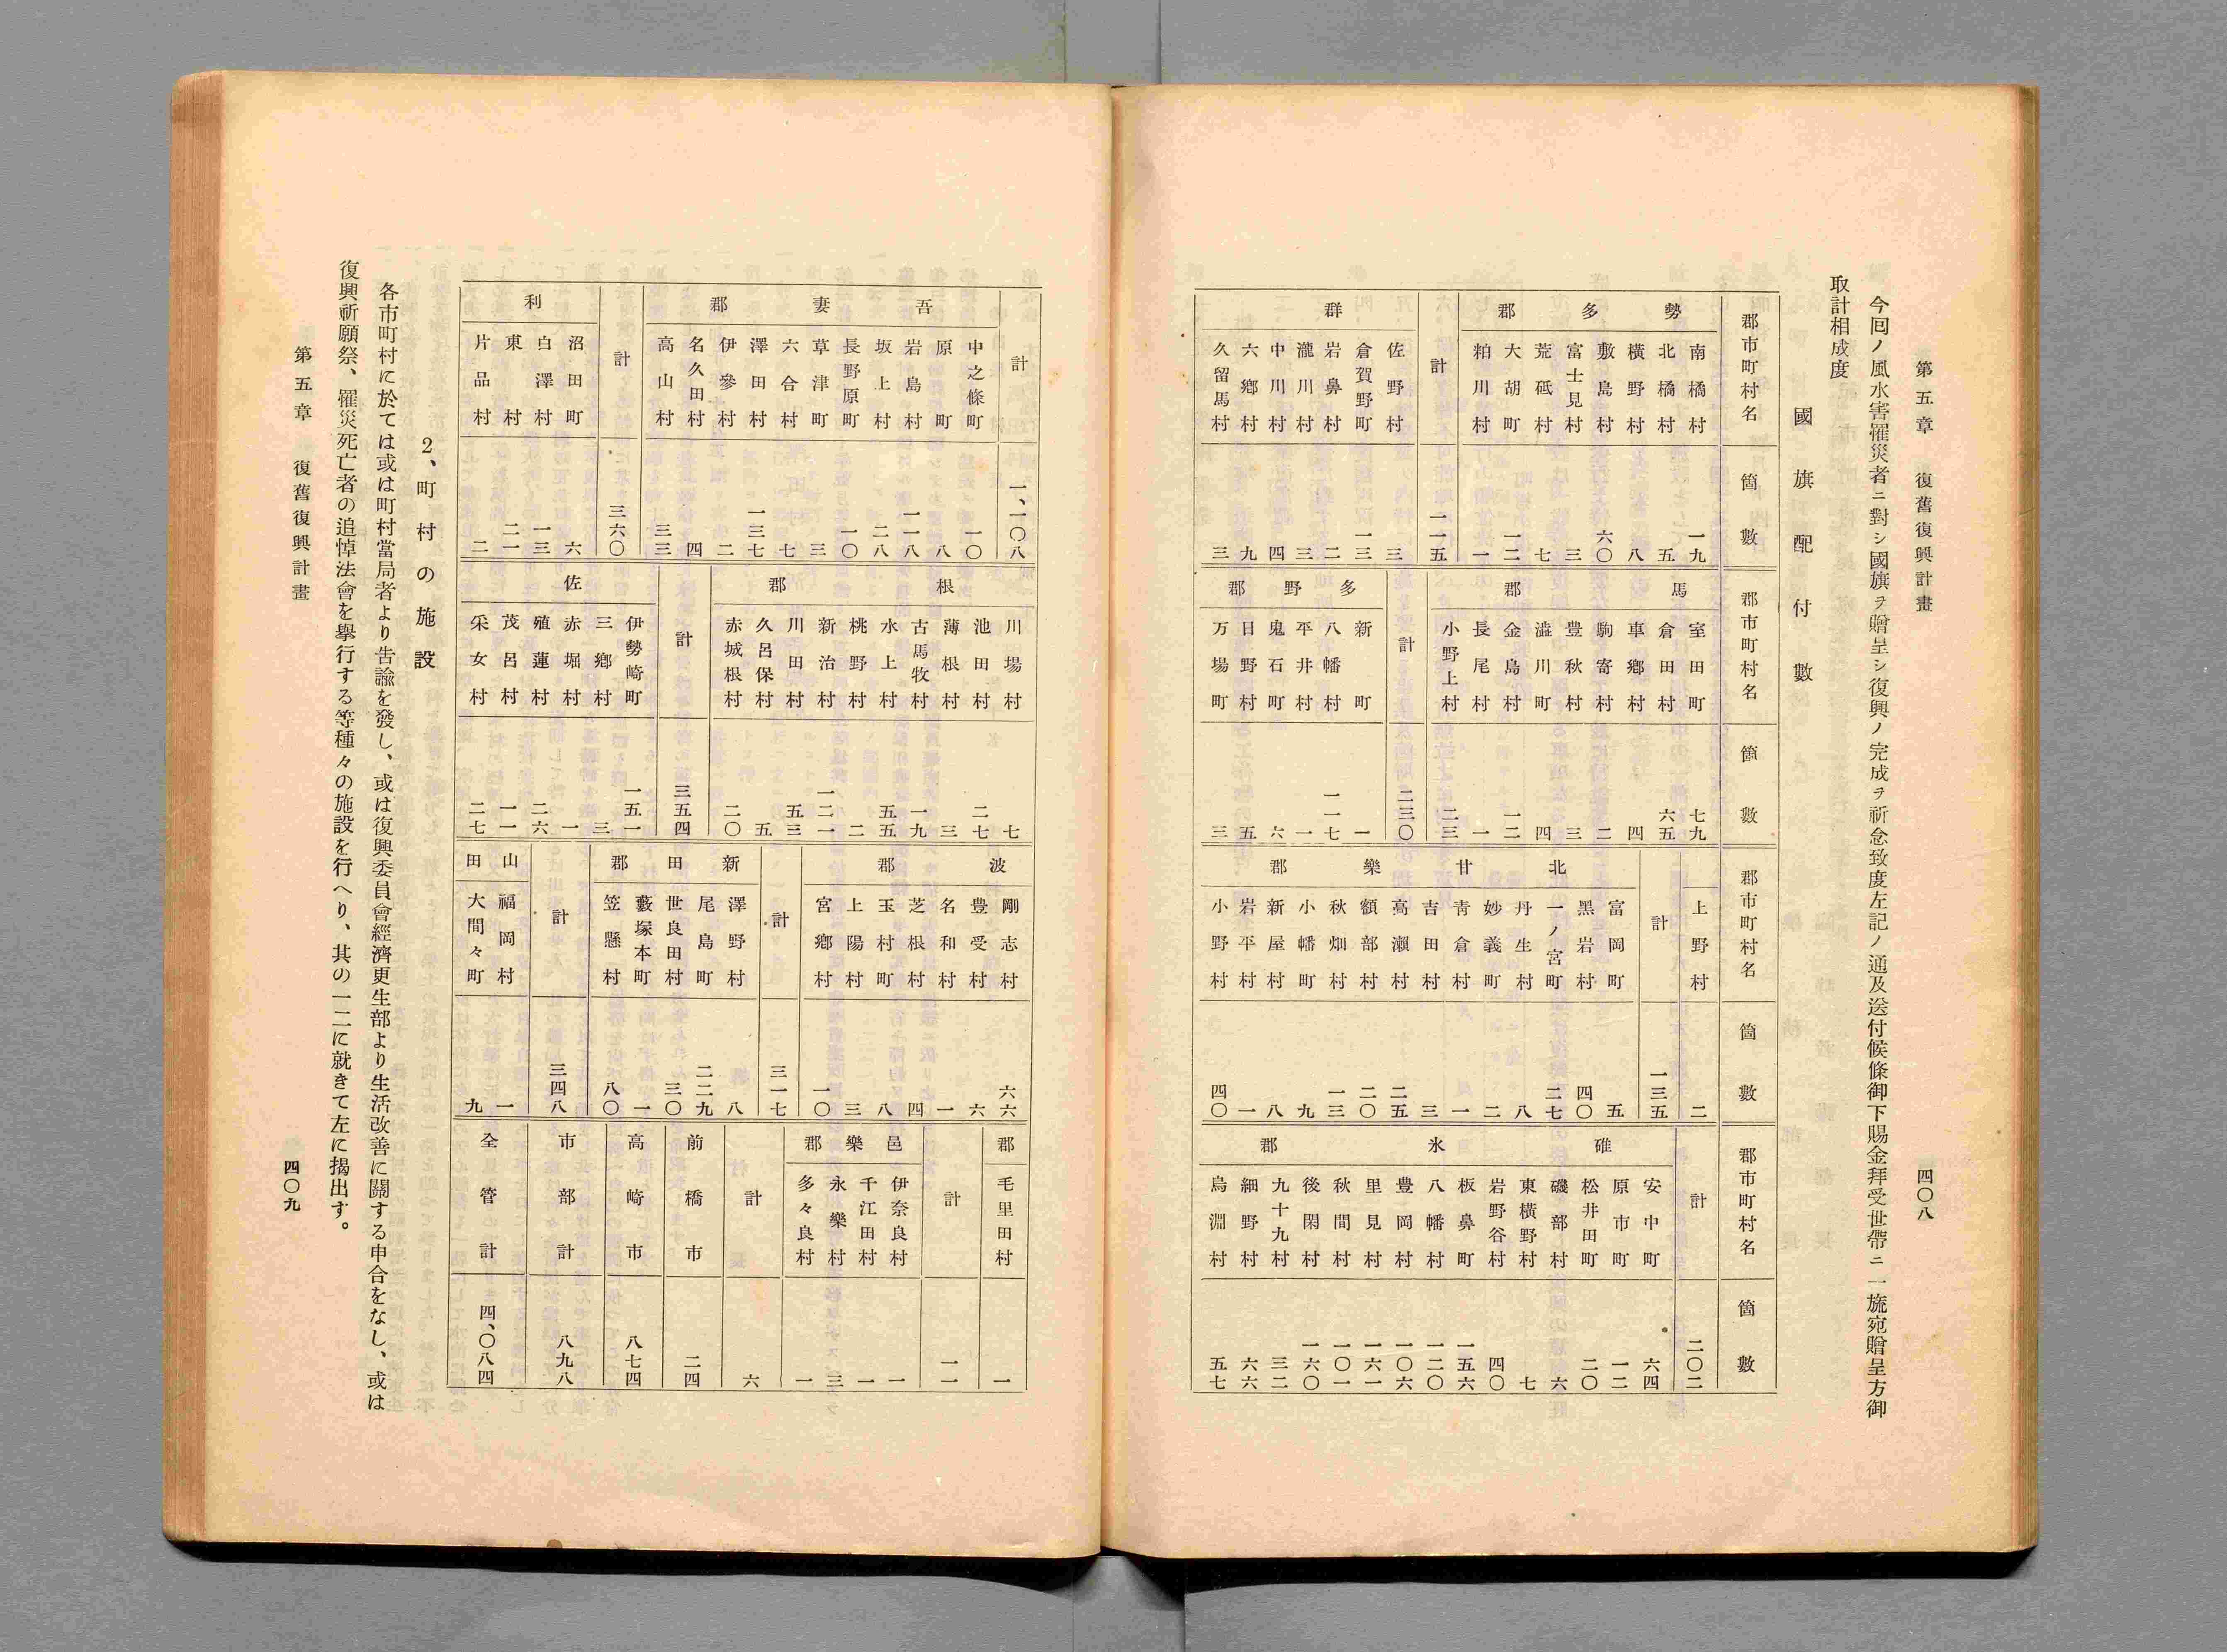 第五章　復舊復興計畫
四〇八
今囘ノ風水害罹災者ニ對シ國旗ヲ贈呈シ復興ノ完成ヲ祈念致度左記ノ通及送付候條御下賜金拜受世帶ニ一旒宛贈呈方御
取計相成度
國旗配付數
郡市町村名
箇數
勢多郡
南橘村 一九
北橘村 五
横野村 八
敷島村 六〇
富士見村 三
荒砥村 七
大胡町 一二
粕川村 一
計 一一五
群
佐野村 三
倉賀野町 一三
岩鼻村 二
瀧川村 三
中川村 四
六鄕村 九
久留馬村 三
郡市町村名
箇數
馬郡
室田町 七九
倉田村 六五
車鄕村 四
駒寄村 二
豊秋村 三
澁川町 四
金島村 一二
長尾村 一
小野上村 二三
計 二三〇
多野郡
新町 一
八幡村 一一七
平井村 一
鬼石町 六
日野村 五
万場町 三
郡市町村名
箇數
上野村 二
計 一三五
北甘樂郡
富岡町 五
黑岩村 四〇
一ノ宮町 二七
丹生村 八
妙義町 二
靑倉村 一
吉田村 三
高瀬村 二五
額部村 二〇
秋畑村 一三
小幡町 九
新屋村 八
岩平村 一
小野村 四〇
郡市町村名
箇數
計 二〇二
碓氷郡
安中町 六四
原市町 一二
松井田町 二〇
磯部村 六
東横野村 七
岩野谷村 四〇
板鼻町 一五六
八幡村 一二〇
豊岡村 一〇六
里見村 一六一
秋間村 一〇一
後閑村 一六〇
九十九村 三二
細野村 六六
烏淵村 五七
計 一、一〇八
吾妻郡
中之條町 一〇
原町 八
岩島村 一一八
坂上村 二八
長野原町 一〇
草津町 三
六合村 七
澤田村 一三七
伊參村 二
名久田村 四
高山村 三三
計 三六〇
利
沼田町 六
白澤村 一三
東村 二一
片品村 二
根郡
川場村 七
池田村 二七
薄根村 三
古馬牧村 一九
水上村 五五
桃野村 二
新治村 一二一
川田村 五三
久呂保村 五
赤城根村 二〇
計 三五四
佐
伊勢崎町 一五一
三鄕村 三
赤堀村 一
殖蓮村 二六
茂呂村 一一
采女村 二七
波郡
剛志村 六六
豊受村 六
名和村 一
芝根村 四
玉村町 八
上陽村 三
宮鄕村 一〇
計 三一七
新田郡
澤野村 八
尾島町 二二九
世良田村 三〇
藪塚本町 一
笠懸村 八〇
計 三四八
山田
福岡村 一
大間々町 九
郡
毛里田村 一
計 一一
邑樂郡
伊奈良村 一
千江田村 一
永樂村 三
多々良村 一
計 六
前橋市 二四
高崎市 八七四
市部計 八九八
全管計 四、〇八四
2、町村の施設
各市町村に於ては或は町村當局者より告諭を發し、或は復興委員會經濟更生部より生活改善に關する申合をなし、或は
復興祈願祭、罹災死亡者の追悼法會を擧行する等種々の施設を行へり、其の一二に就きて左に揭出す。
第五章　復舊復興計畫
四〇九